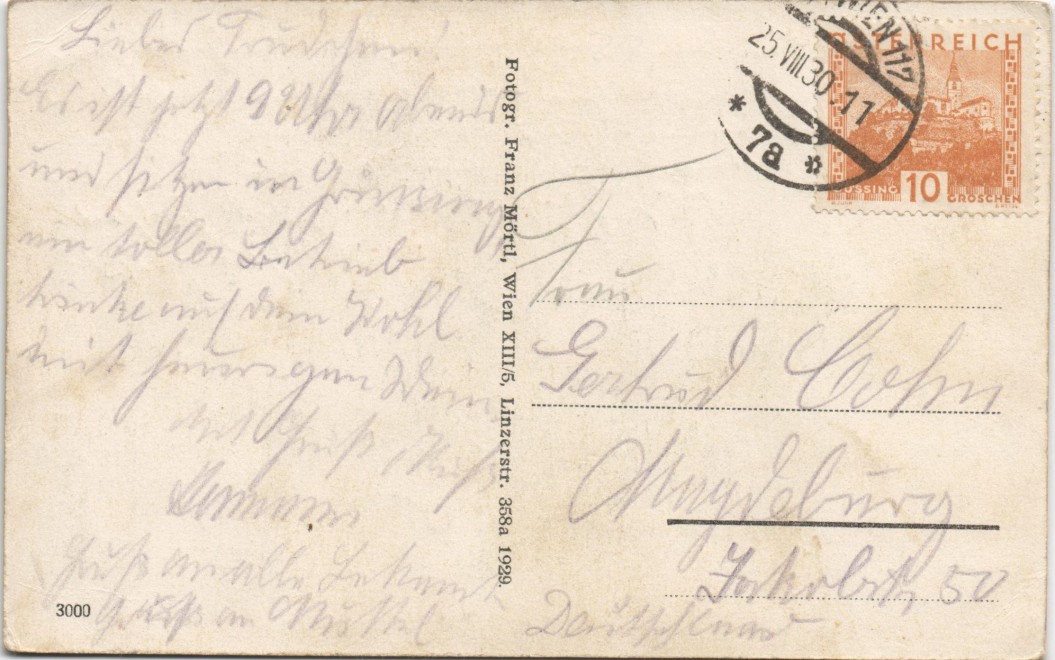 Liebes Trudchen!
Es ist jetzt 9 Uhr Abends
und sitzen in Grinzing
ein toller Betrieb
trinke auf dein Wohl
mit heurigen Wein
Mit Gruß Kuß
Gruß an alle Bekannt
Gruß an
3000
Fotogr. Franz Mörtl, Wien XIII/5, Linzerstr. 358a 1929.
WIEN 117
25.VIII.30.11
* 7a *
ÖSTERREICH
GÜSSING 10 GROSCHEN
Frau
Gertrud Cohn
Magdeburg
Jakobstr 50
Deutschland